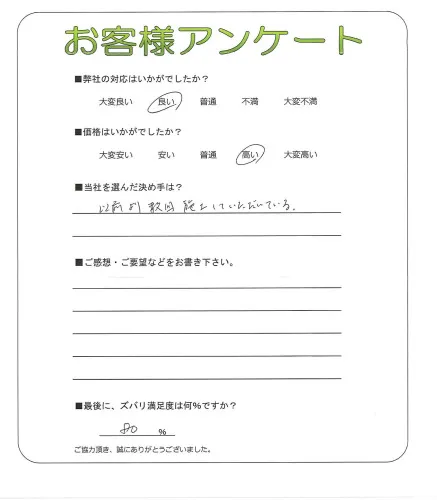 お客様アンケート
■弊社の対応はいかがでしたか？
大変良い 良い 普通 不満 大変不満
■価格はいかがでしたか？
大変安い 安い 普通 高い 大変高い
■当社を選んだ決め手は？
以前より数回施工していただいている。
■ご感想・ご要望などをお書き下さい。
■最後に、ズバリ満足度は何％ですか？
80 ％
ご協力頂き、誠にありがとうございました。